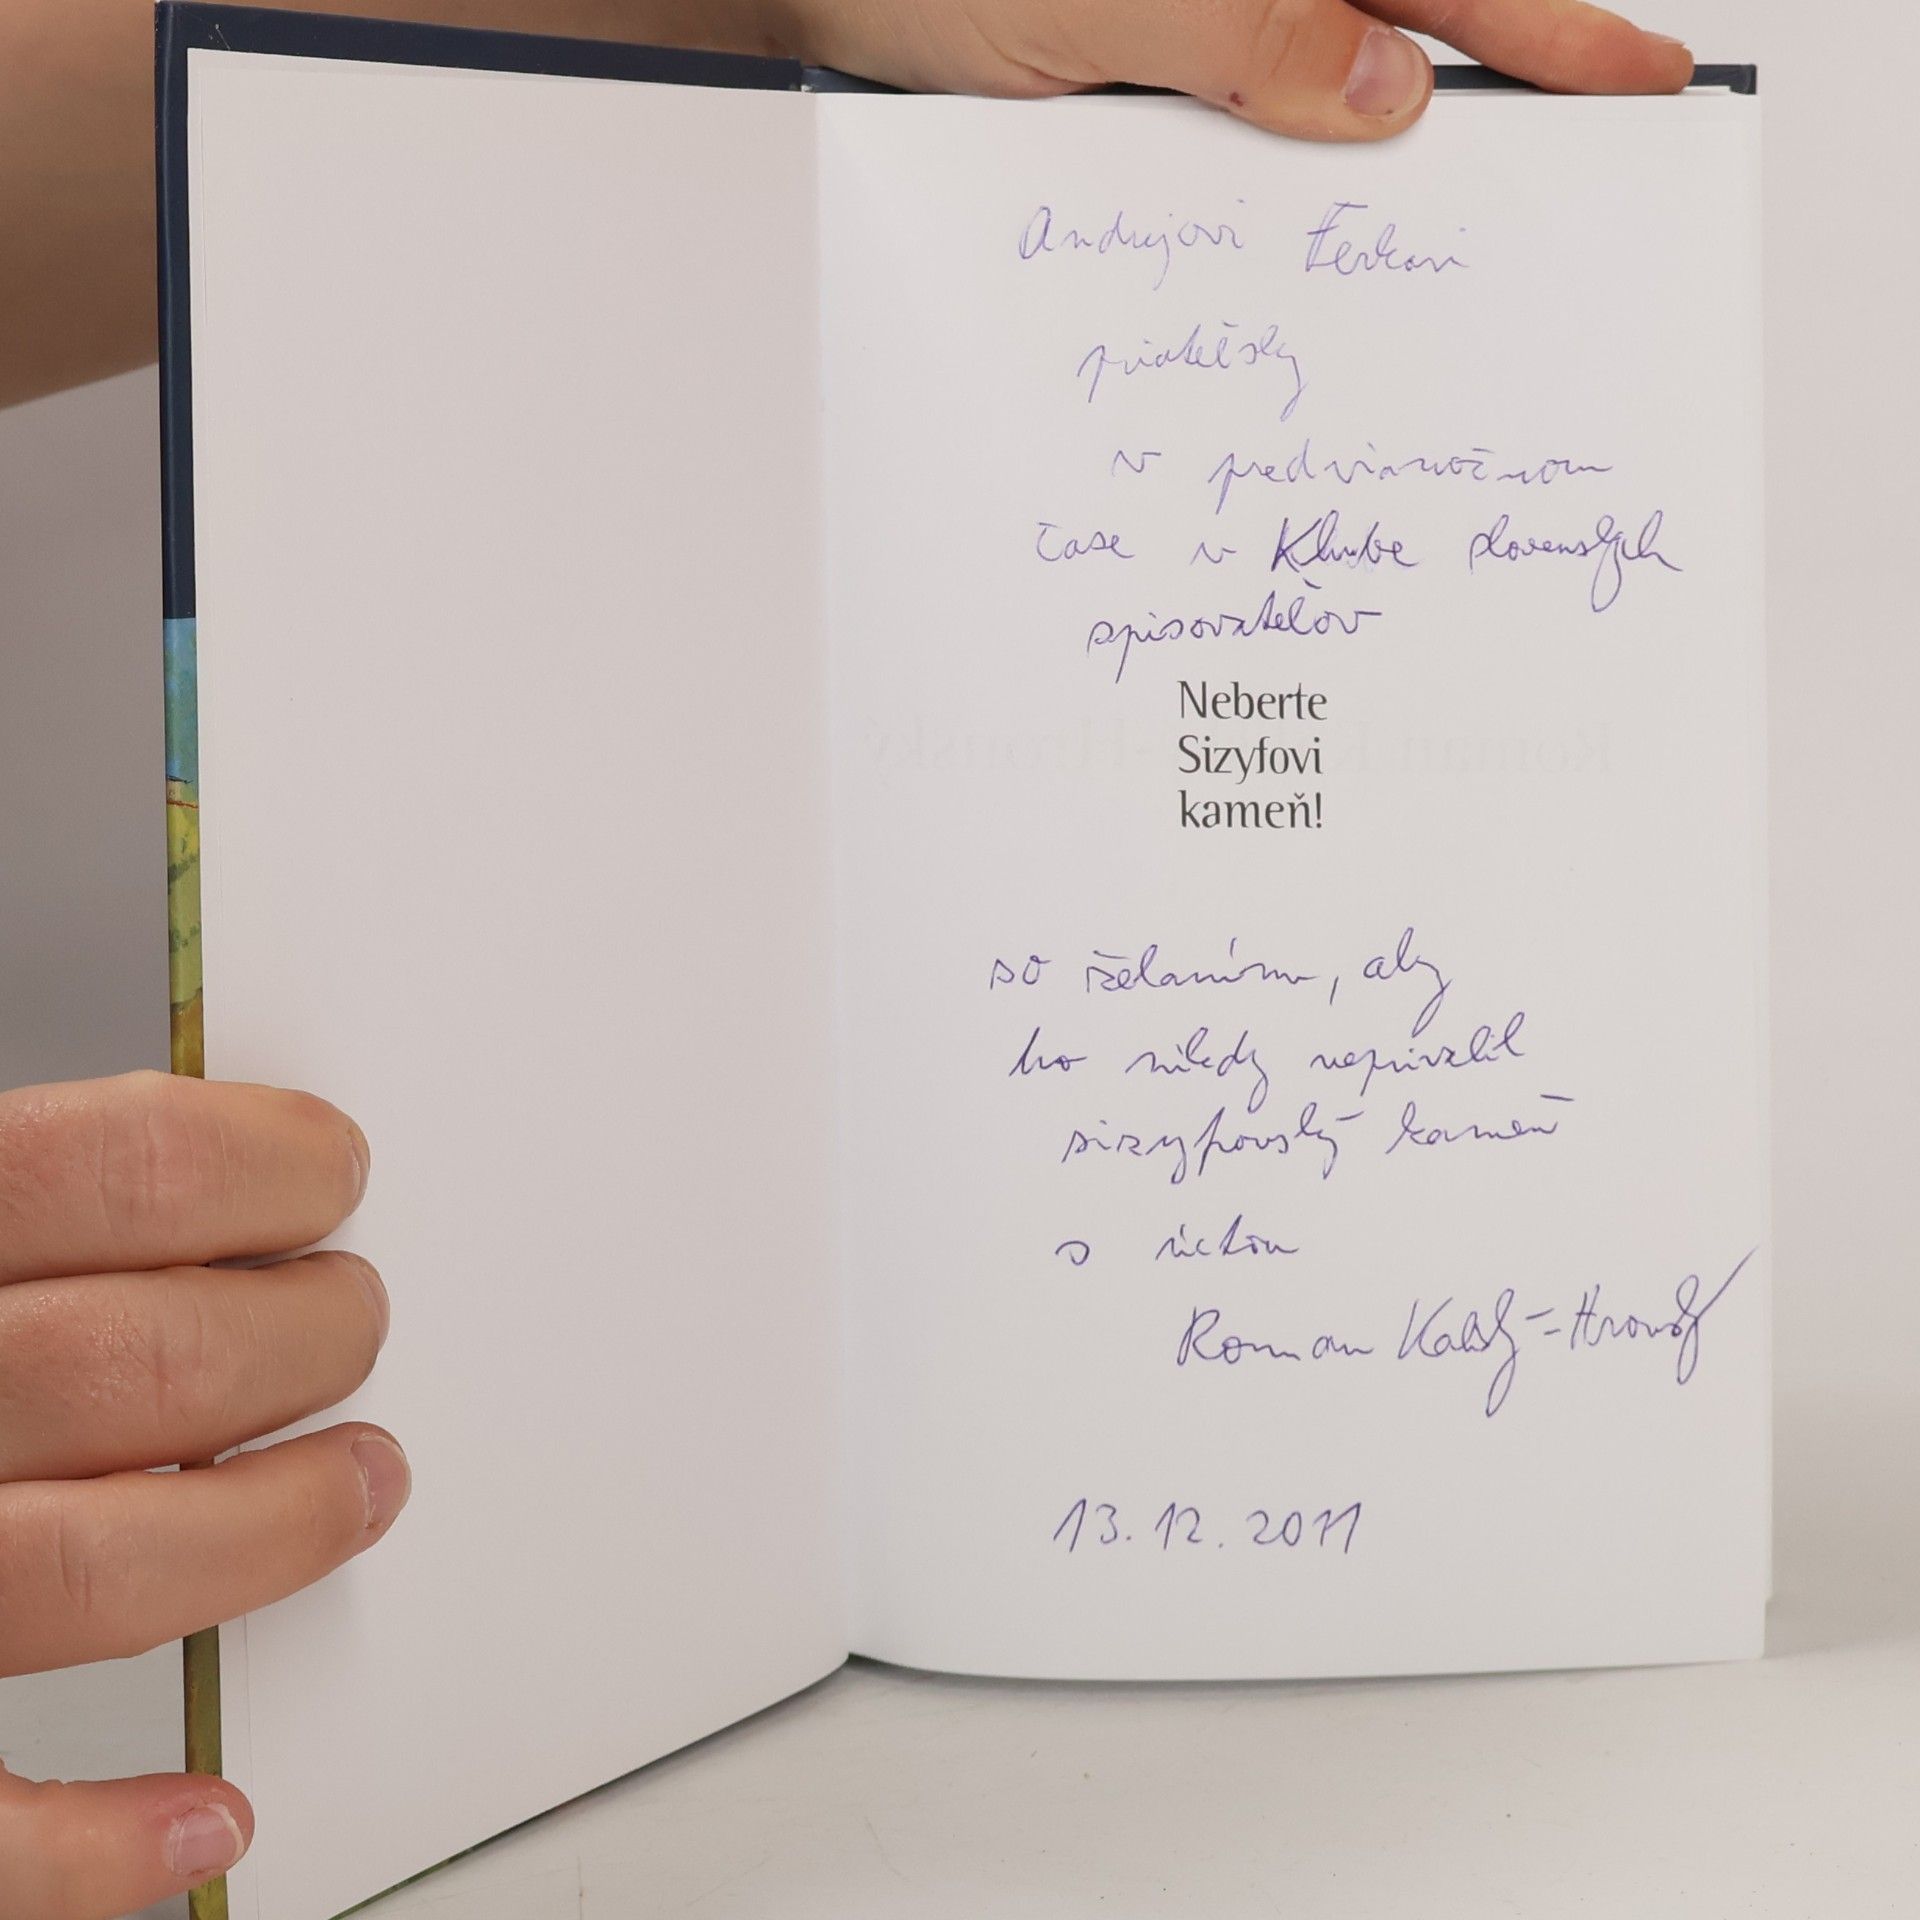 Andrejovi Ferkovi
priateľsky
v predvianočnom
čase v Klube slovenských
spisovateľov
Neberte
Sizyfovi
kameň!
so želaním, aby
ho nikdy neprivalil
sizyfovský kameň
s úctou
Roman Kaliský-Hronský
13.12.2011